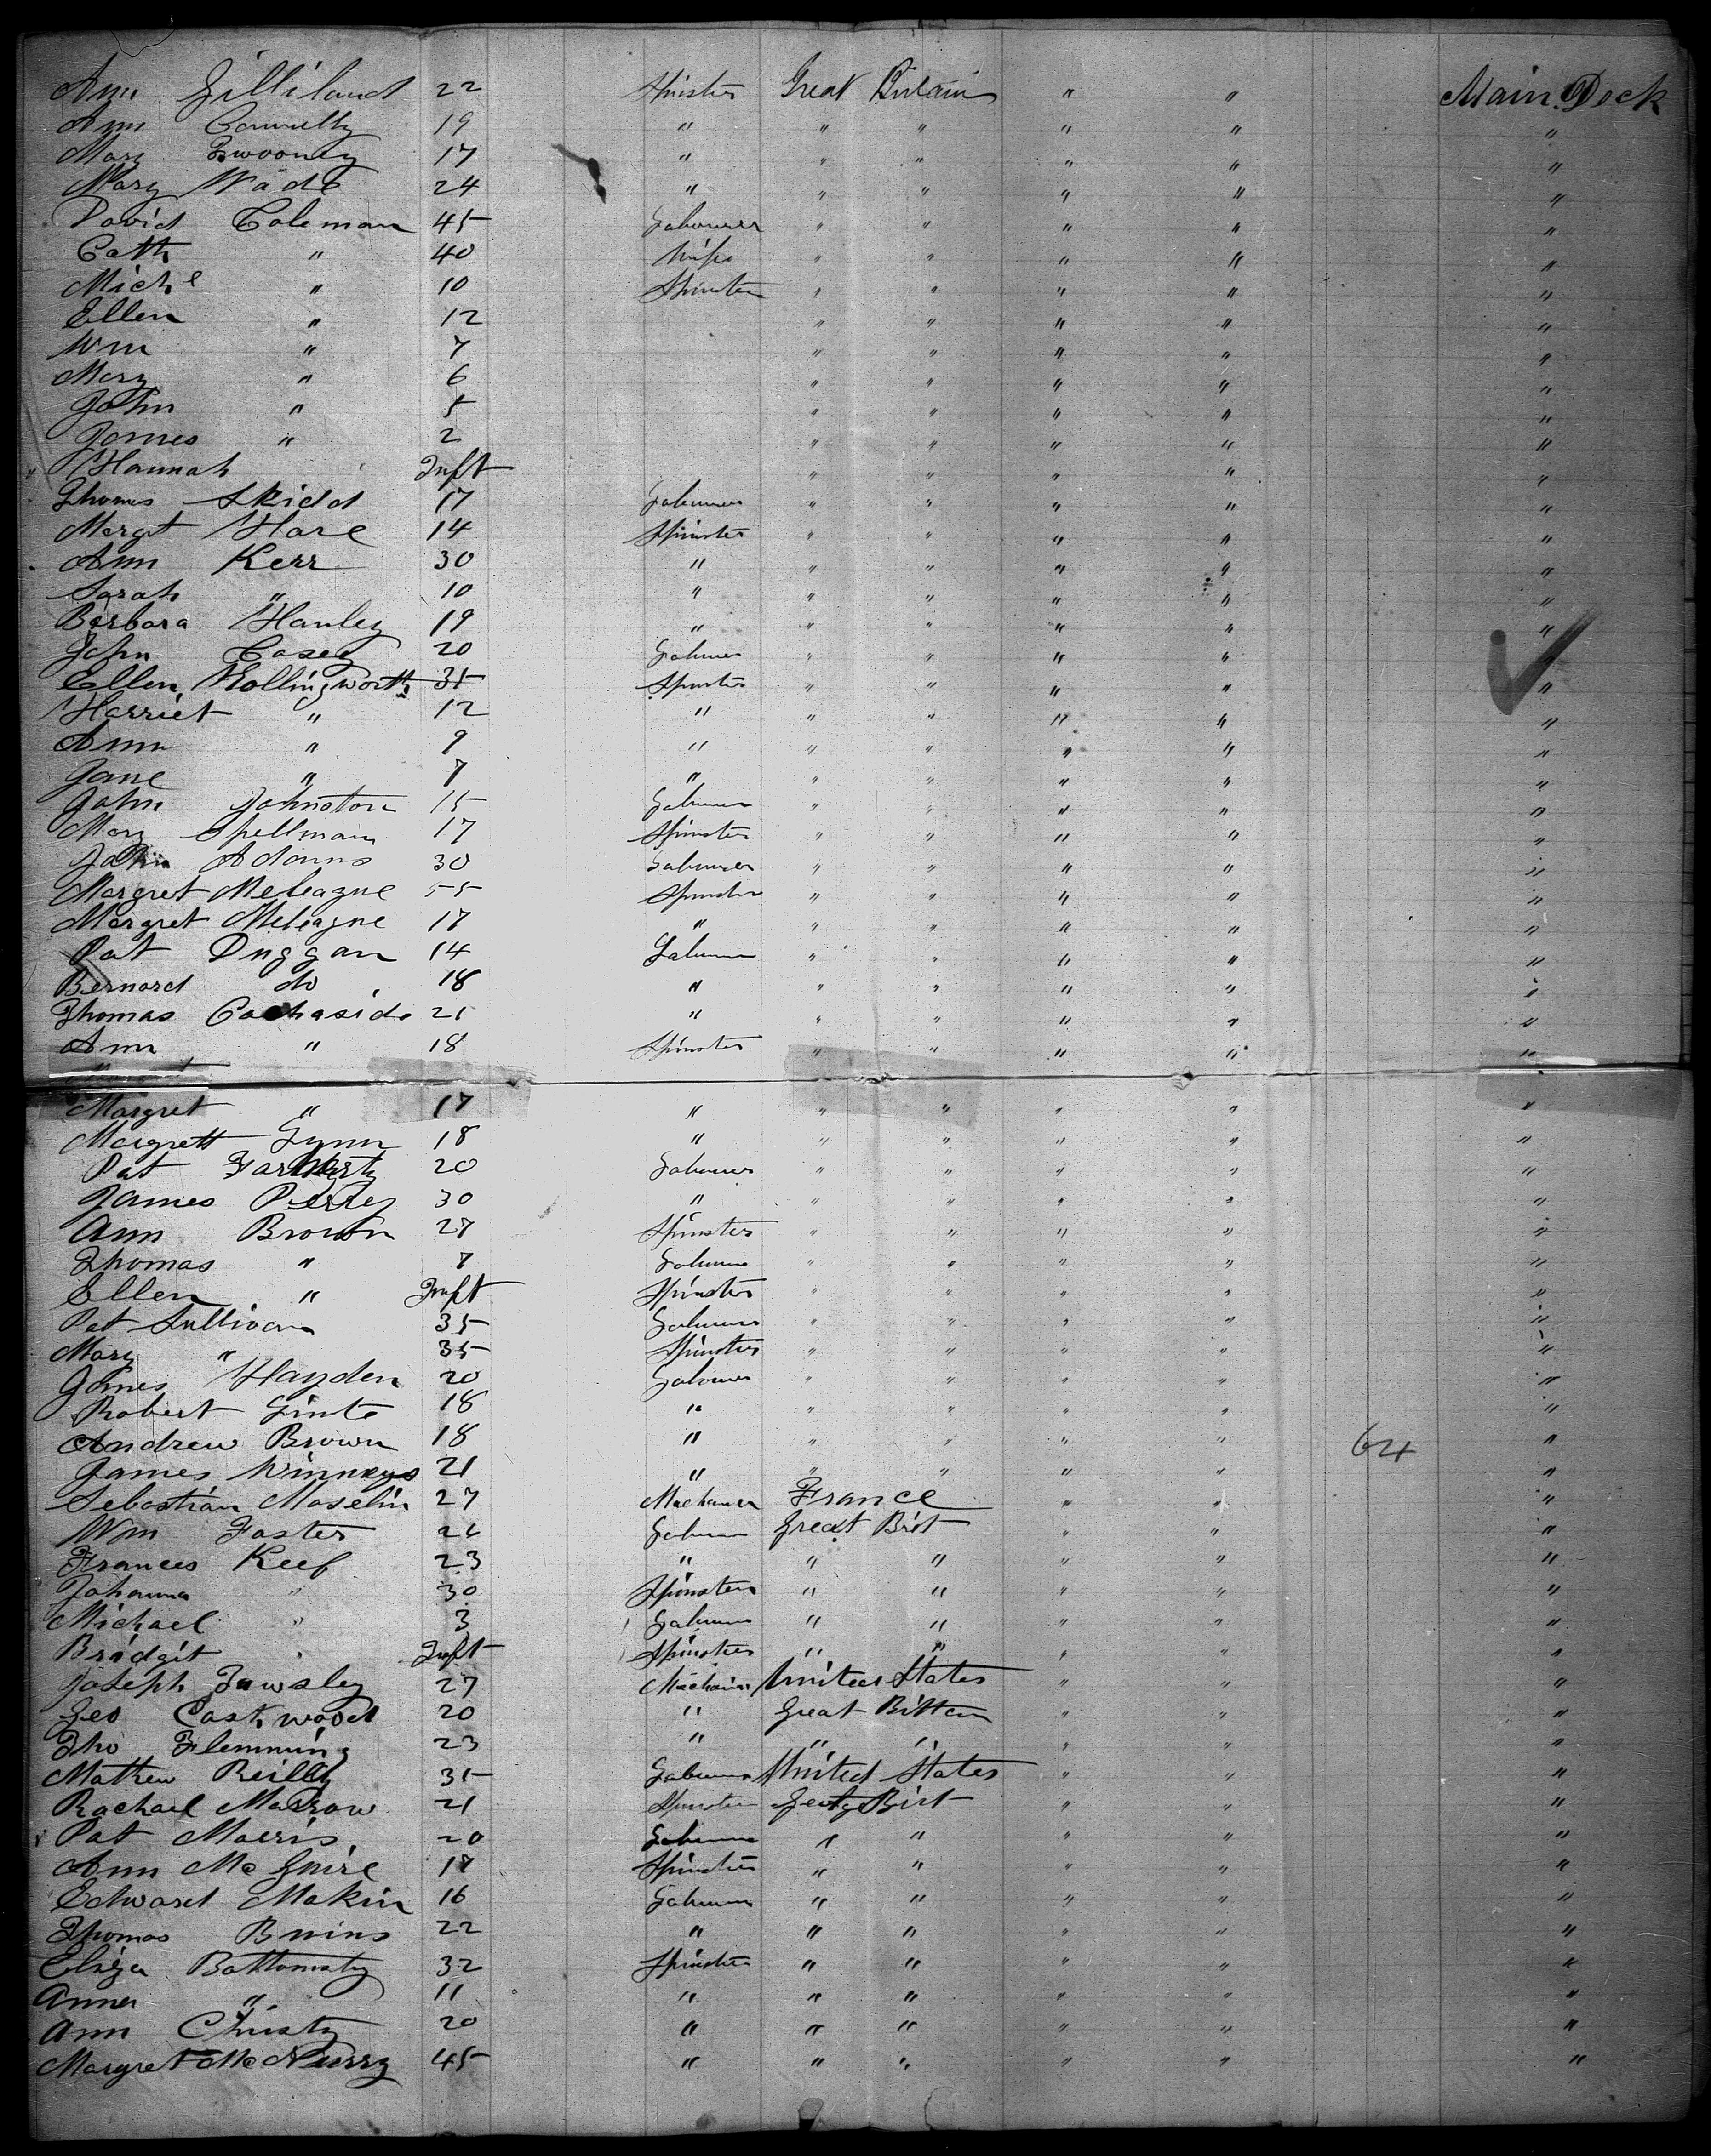 Ann Gilliland 22 Spinster Great Britain " " Main Deck
Ann Connelly 19 " " " " " "
Mary 17 " " " " " "
Mary Wade 24 " " " " " "
David Coleman 45 Labourer " " " " "
Cath " 40 Wife " " " " "
Michl " 10 Spinster " " " " "
Ellen " 12 " " " " "
Wm " 7 " " " " "
Mary " 6 " " " " "
John " 5 " " " " "
James " 2 " " " " "
Hannah Inft " " " " "
Thomas Skidd 17 Labourer " " " " "
Margt Hare 14 Spinster " " " " "
Ann Kerr 30 " " " " " "
Sarah " 10 " " " " " "
Barbara Hanley 19 " " " " " "
John Casey 20 Labourer " " " " "
Ellen Hollingworth 35 Spinster " " " " "
Harriet " 12 " " " " " "
Ann " 9 " " " " " "
Jane " 7 " " " " " "
John Johnston 15 Labourer " " " " "
Mary Spellman 17 Spinster " " " " "
John Adams 30 Labourer " " " " "
Margret Meleague 55 Spinster " " " " "
Margret Meleague 17 " " " " " "
Pat Duggan 14 Labourer " " " " "
Bernard do 18 " " " " " "
Thomas 21 " " " " " "
Ann " 18 Spinster " " " " "
Margret " 17 " " " " " "
Margrett Lynn 18 " " " " " "
Pat 20 Labourer " " " " "
James Perry 30 " " " " " "
Ann Brown 27 Spinster " " " " "
Thomas " 7 Labourer " " " " "
Ellen " Inft Spinster " " " " "
Pat Sullivan 35 Labourer " " " " "
Mary " 35 Spinster " " " " "
James Hayden 20 Labourer " " " " "
Robert 18 " " " " " "
Andrew Brown 18 " " " " " 64 "
James 21 " " " " " "
Sebastian Moselin 27 Mechanic France " " "
Wm Foster 26 Labourer Great Brit " " "
Frances Keef 23 " " " " " "
Johanna " 30 Spinster " " " " "
Michael " 3 Labourer " " " " "
Bridgit " Inft Spinster " " " " "
Joseph Tawsley 27 Mechanic United States " " "
Geo Eastwood 20 " Great Brittan " " "
Tho Flemming 23 " " " " " "
Mathew Reilly 35 Labourer United States " " "
Rachael Morrow 21 Spinster Birt " " "
Pat Morris 20 Labourer " " " " "
Ann McGuire 17 Spinster " " " " "
Edward Makin 16 Labourer " " " " "
Thomas 22 " " " " " "
Eliza Bottomsty 32 Spinster " " " " "
Anna " 11 " " " " " "
Ann Christy 20 " " " " " "
Margret 45 " " " " " "